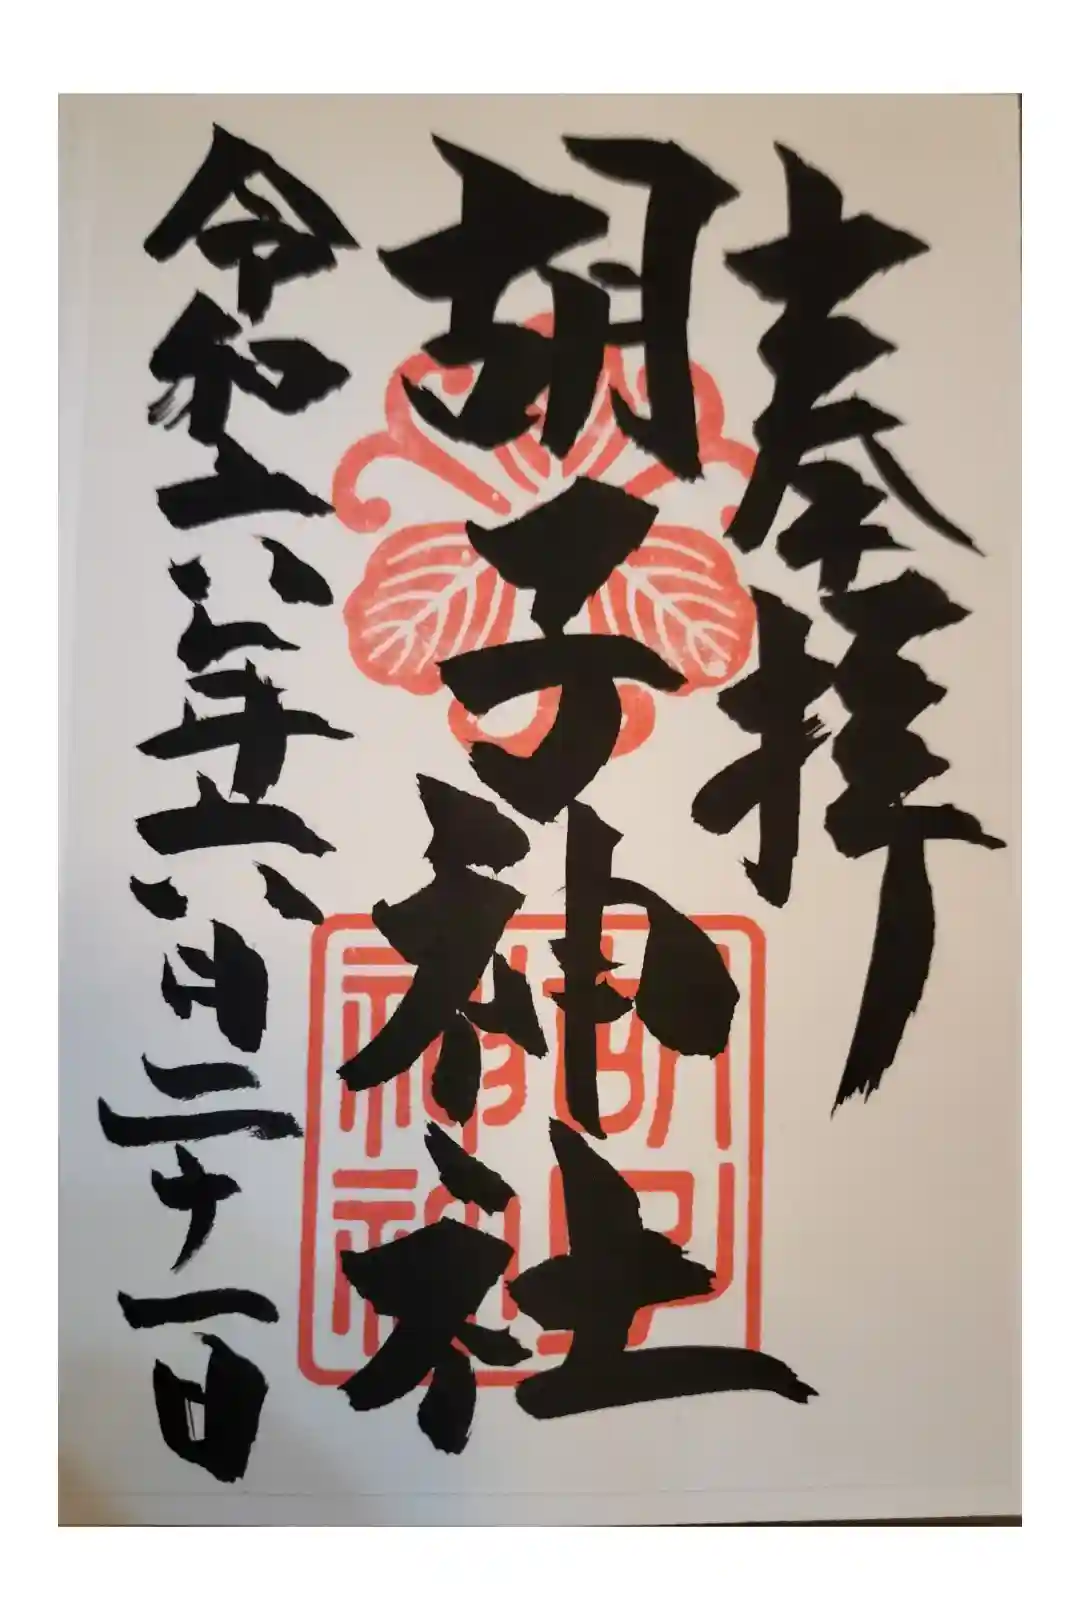 奉拝
胡子神社
令和六年六月二十一日